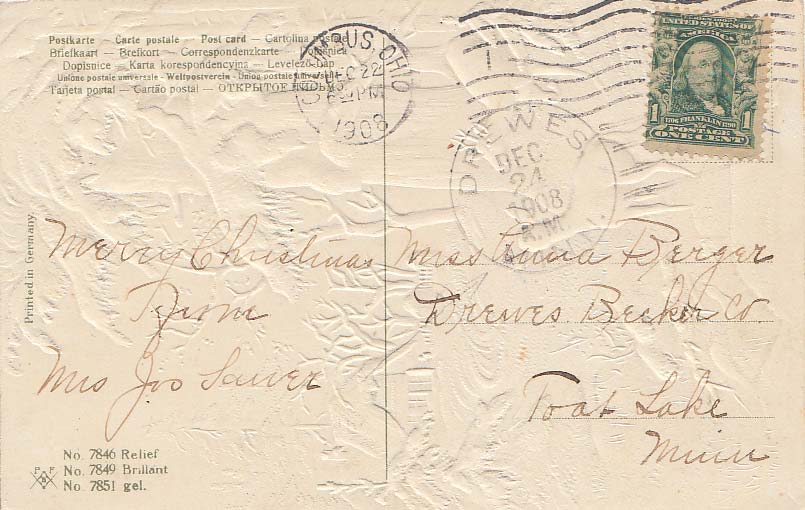 Postkarte – Carte postale – Post card – Cartolina postale
Briefkaart – Brefkort – Correspondenzkarte
Dopisnice – Karta korespondencyjna – Levelező-Lap
Unione postale universale – Weltpostverein – Union postale universelle
Tarjeta postal – Cartão postal – ОТКРЫТОЕ ПИСЬМО
COLUMBUS, OHIO
DEC 22
PM
1908
DREWES
DEC
24
1908
A.M.
MINN.
UNITED STATES OF
AMERICA
1706 FRANKLIN 1790
1 POSTAGE 1
ONE CENT
Printed in Germany
Merry Christmas
From
Mrs Joo Sawer
Miss Anna Berger
Drewes Becker Co
Toat Lake
Minn
No. 7846 Relief
No. 7849 Brillant
No. 7851 gel.
P F B